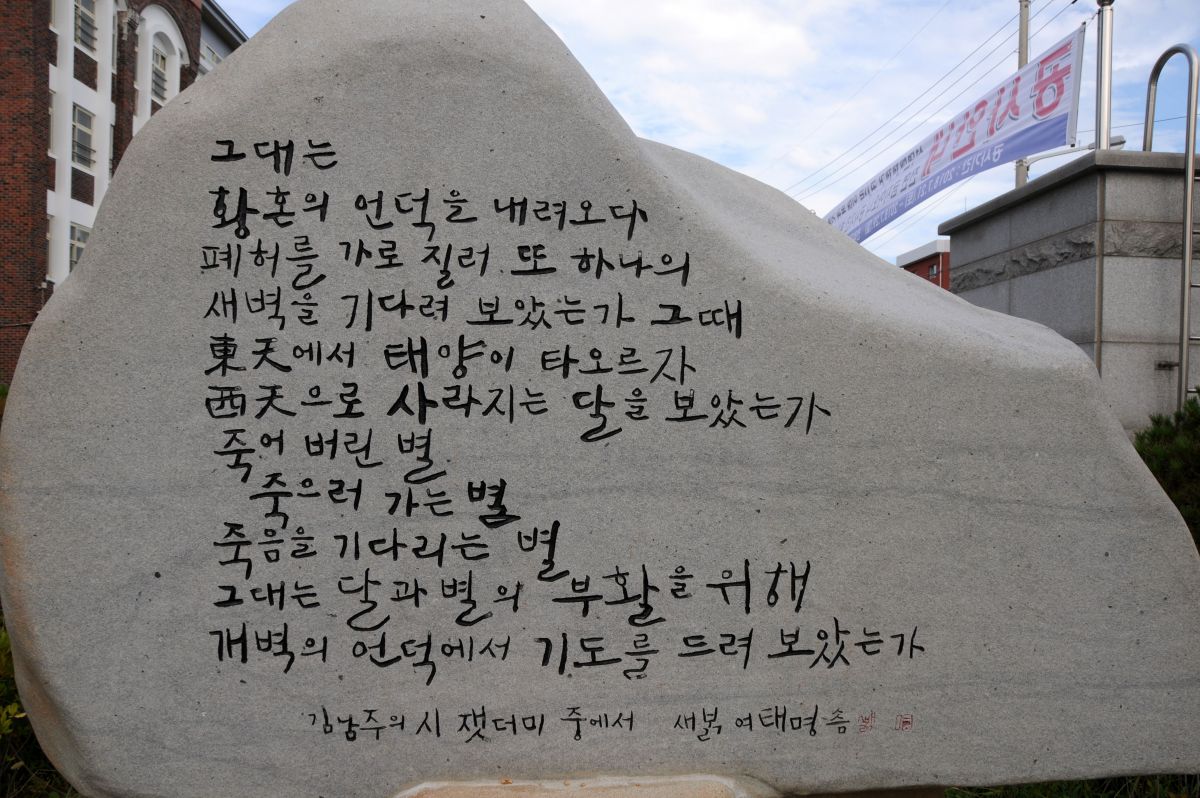 그대는
황혼의 언덕을 내려오다
폐허를 가로 질러 또 하나의
새벽을 기다려 보았는가 그때
東天에서 태양이 타오르자
西天으로 사라지는 달을 보았는가
죽어 버린 별
죽으러 가는 별
죽음을 기다리는 별
그대는 달과 별의 부활을 위해
개벽의 언덕에서 기도를 드려 보았는가
김남주의 시 잿더미 중에서 새붂 여태명 씀